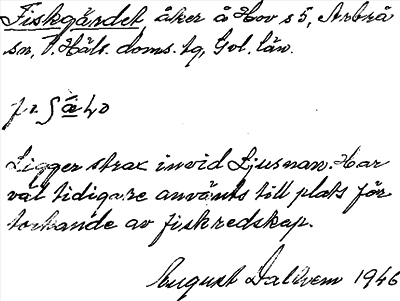 Fiskgärdet åker å Hov s 5, Arbrå
sn, V. Häls. doms. tg, Gvl. län.
Ligger strax invid Ljusnan. Har
väl tidigare använts till plats för
torkande av fiskredskap.
August Dalkvem 1946